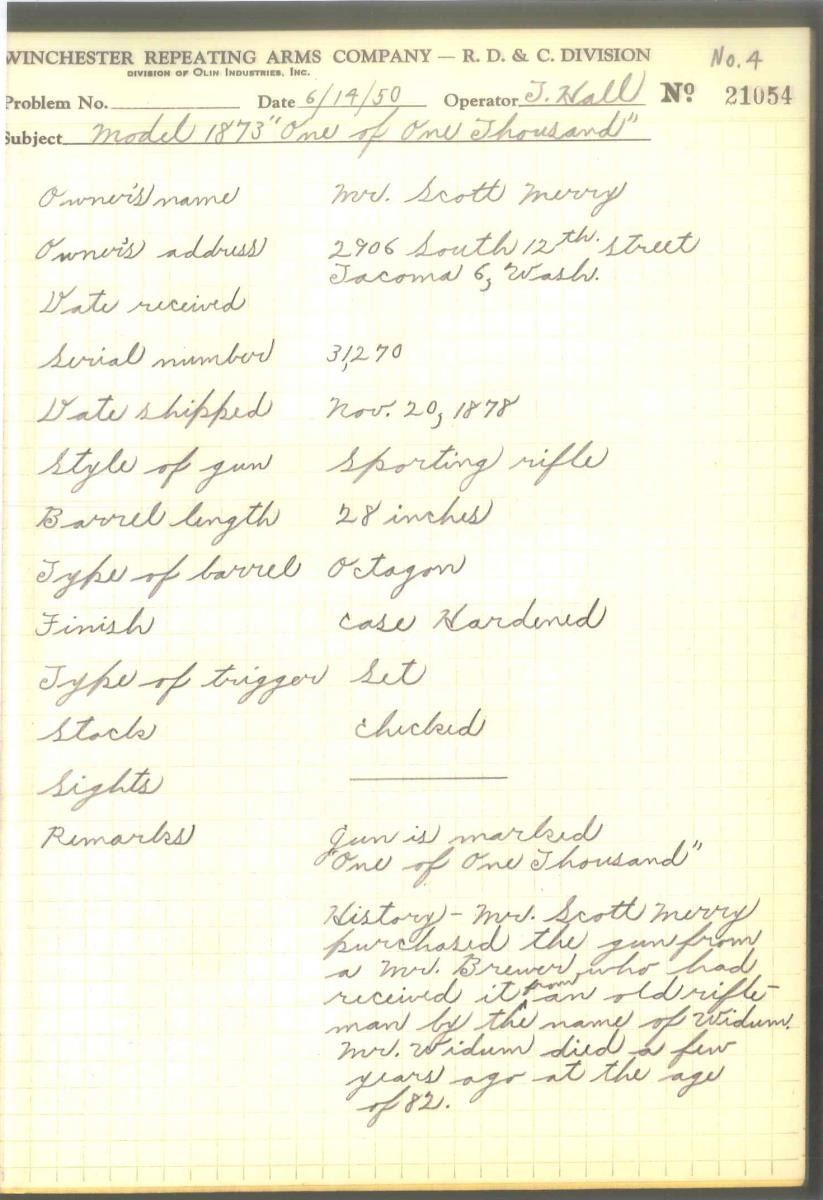 WINCHESTER REPEATING ARMS COMPANY — R. D. & C. DIVISION
No. 4
DIVISION OF OLIN INDUSTRIES, INC.
Problem No. Date 6/14/50 Operator T. Hall No 21054
Subject Model 1873 "One of One Thousand"
Owner's name Mr. Scott Merry
Owner's address 2906 South 12th. Street
Tacoma 6, Wash.
Date received
Serial number 31,270
Date shipped Nov. 20, 1878
Style of gun Sporting rifle
Barrel length 28 inches
Type of barrel Octagon
Finish Case Hardened
Type of trigger Set
Stock Checked
Sights ———
Remarks Gun is marked
"One of One Thousand"
History - Mr. Scott Merry
purchased the gun from
a Mr. Brewer, who had
received it from an old rifle-
man by the name of Widum.
Mr. Widum died a few
years ago at the age
of 82.